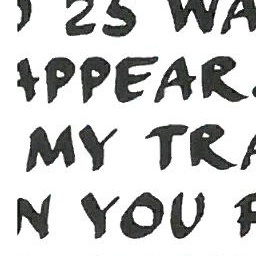 25 WA
APPEAR.
MY TRA
N YOU